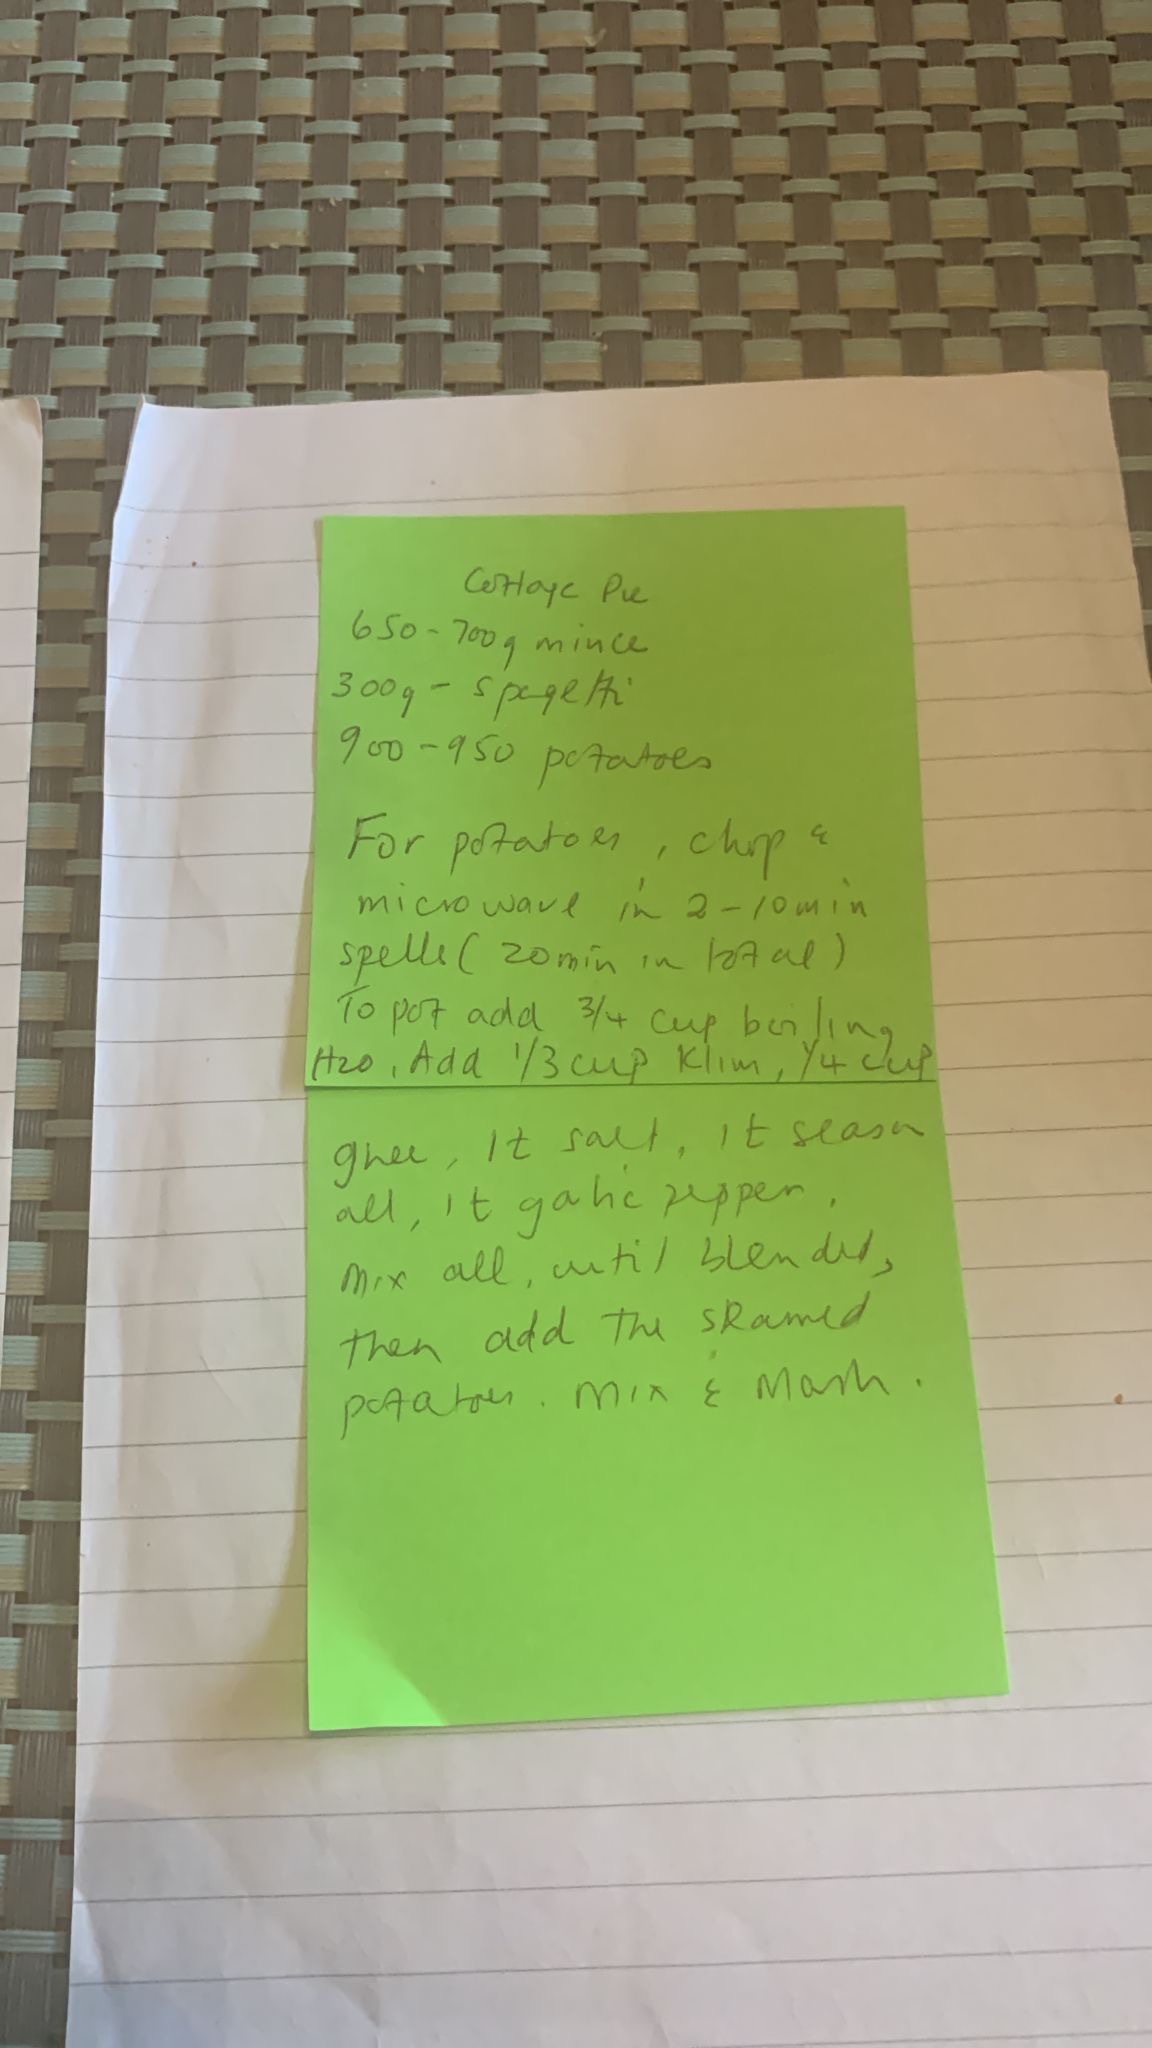 Cottage Pie
650-700g mince
300g - spagetti
900-950 potatoes
For potatoes, chop &
microwave in 2-10min
spells (20min in total)
To pot add 3/4 cup boiling
H20, Add 1/3 cup Klim, 1/4 cup
ghee, 1t salt, 1t season
all, 1t galic pepper.
Mix all, until blended,
then add the steamed
potatoes. Mix & Mash.